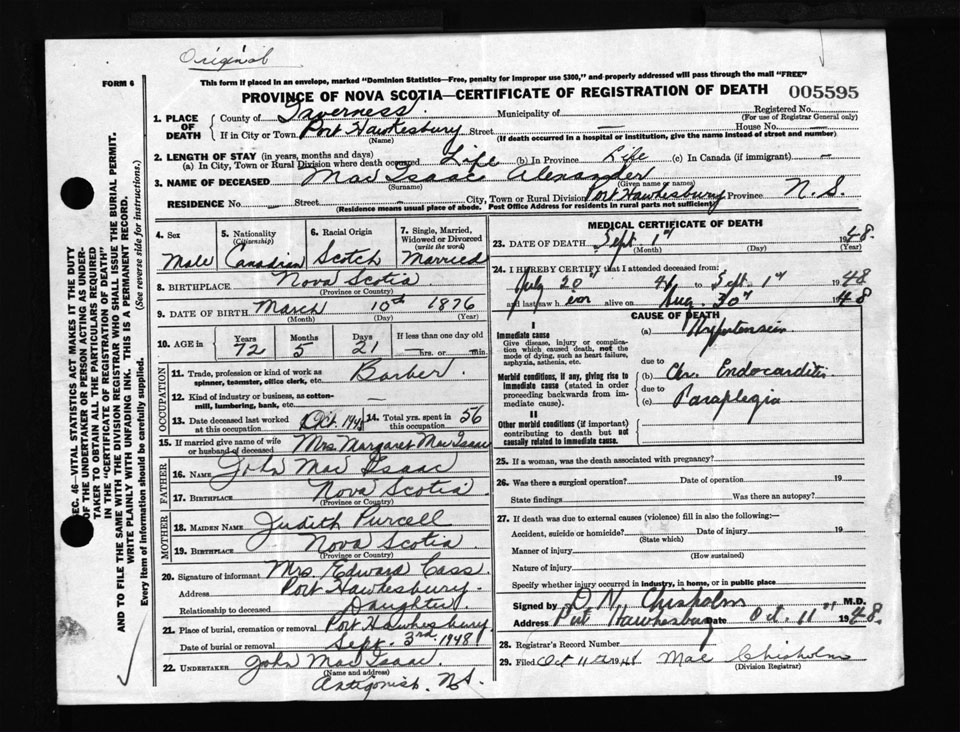 Original
FORM 6
This form if placed in an envelope, marked "Dominion Statistics—Free, penalty for improper use $300," and properly addressed will pass through the mail "FREE"
PROVINCE OF NOVA SCOTIA—CERTIFICATE OF REGISTRATION OF DEATH 005595
1. PLACE OF DEATH
County of Inverness. Municipality of Registered No.
(For use of Registrar General only)
If in City or Town Port Hawkesbury Street — House No. —
(Name) (If death occurred in a hospital or institution, give the name instead of street and number)
2. LENGTH OF STAY (in years, months and days)
(a) In City, Town or Rural Division where death occured Life (b) In Province Life (c) In Canada (if immigrant) —
3. NAME OF DECEASED Mac Isaac Alexander
(Surname) (Given name or names)
RESIDENCE No. — Street — City, Town or Rural Division Port Hawkesbury Province N.S.
(Residence means usual place of abode. Post Office Address for residents in rural parts not sufficient)
4. Sex
Male
5. Nationality (Citizenship)
Canadian
6. Racial Origin
Scotch
7. Single, Married, Widowed or Divorced (write the word)
Married
8. BIRTHPLACE Nova Scotia
(Province or Country)
9. DATE OF BIRTH March 10th 1876
(Month) (Day) (Year)
10. AGE in Years 72 Months 5 Days 21 If less than one day old
hrs. or min.
OCCUPATION
11. Trade, profession or kind of work as spinner, teamster, office clerk, etc. Barber
12. Kind of industry or business, as cotton-mill, lumbering, bank, etc. —
13. Date deceased last worked at this occupation Oct. 1946 14. Total yrs. spent in this occupation 56
15. If married give name of wife or husband of deceased Mrs. Margaret Mac Isaac
FATHER
16. NAME John Mac Isaac
17. BIRTHPLACE Nova Scotia
(Province or Country)
MOTHER
18. MAIDEN NAME Judith Purcell
19. BIRTHPLACE Nova Scotia
(Province or Country)
20. Signature of informant Mrs. Edward Cass.
Address Port Hawkesbury.
Relationship to deceased Daughter.
21. Place of burial, cremation or removal Port Hawkesbury
Date of burial or removal Sept. 3rd 1948
22. UNDERTAKER John Mac Isaac.
(Name and address)
Antigonish. N.S.
MEDICAL CERTIFICATE OF DEATH
23. DATE OF DEATH Sept 1st 1948.
(Month) (Day) (Year)
24. I HEREBY CERTIFY that I attended deceased from:
July 20th to Sept. 1st 1948
and last saw h alive on Aug. 30th 1948
CAUSE OF DEATH
I
Immediate cause
Give disease, injury or complication which caused death, not the mode of dying, such as heart failure, asphyxia, asthenia, etc.
(a) Hypertension
due to
Morbid conditions, if any, giving rise to immediate cause (stated in order proceeding backwards from immediate cause).
(b) Chr. Endocarditis
due to
(c) Paraplegia
II
Other morbid conditions (if important) contributing to death but not causally related to immediate cause.
25. If a woman, was the death associated with pregnancy?
26. Was there a surgical operation? Date of operation 19
State findings Was there an autopsy?
27. If death was due to external causes (violence) fill in also the following:—
Accident, suicide or homicide? Date of injury 19
(State which)
Manner of injury
(How sustained)
Nature of injury
Specify whether injury occurred in industry, in home, or in public place
Signed by Chisholm M.D.
Address Port Hawkesbury Oct. 11th 1948.
28. Registrar's Record Number
29. Filed Oct 11th 1948 Mae Chisholm
(Division Registrar)
SEC. 46—VITAL STATISTICS ACT MAKES IT THE DUTY
OF THE UNDERTAKER OR PERSON ACTING AS UNDER-
TAKER TO OBTAIN ALL THE PARTICULARS REQUIRED
IN THE "CERTIFICATE OF REGISTRATION OF DEATH"
AND TO FILE THE SAME WITH THE DIVISION REGISTRAR WHO SHALL ISSUE THE BURIAL PERMIT.
WRITE PLAINLY WITH UNFADING INK. THIS IS A PERMANENT RECORD.
Every item of information should be carefully supplied. (See reverse side for instructions.)